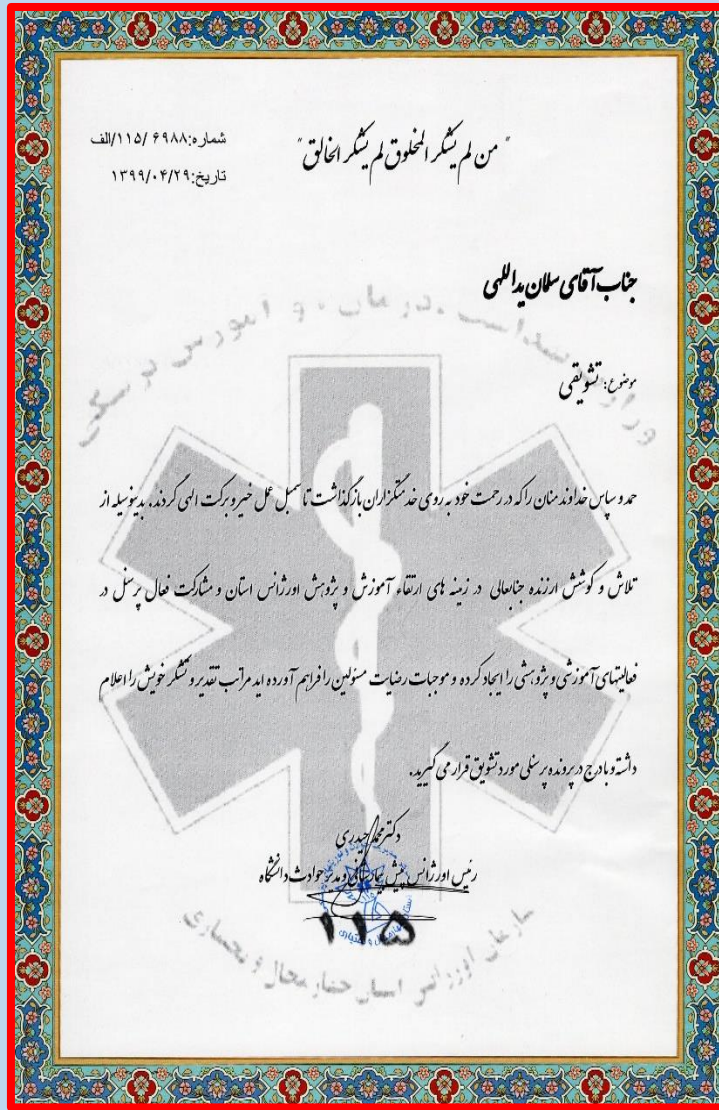 "من لم یشکر المخلوق لم یشکر الخالق"
شماره:۶۹۸۸ /۱۱۵/الف
تاریخ:۱۳۹۹/۰۴/۲۹
جناب آقای سلمان یداللهی
موضوع: تشویقی
وزارت بهداشت ،درمان ، و آموزش پزشکی
حمد و سپاس خداوند منان را که در رحمت خود به روی خدمتگزاران باز گذاشت تا سمبل عمل خیر و برکت الهی گردند. بدینوسیله از
تلاش و کوشش ارزنده جنابعالی در زمینه های ارتقاء آموزش و پژوهش اورژانس استان و مشارکت فعال پرسنل در
فعالیتهای آموزشی و پژوهشی را ایجاد کرده و موجبات رضایت مسئولین را فراهم آورده اید مراتب تقدیر و تشکر خویش را اعلام
داشته و با درج در پرونده پرسنلی مورد تشویق قرار می گیرید.
دکتر محمد حیدری
رئیس اورژانس پیش بیمارستانی و مدیر حوادث دانشگاه
۱۱۵
سازمان اورژانس استان چهارمحال و بختیاری